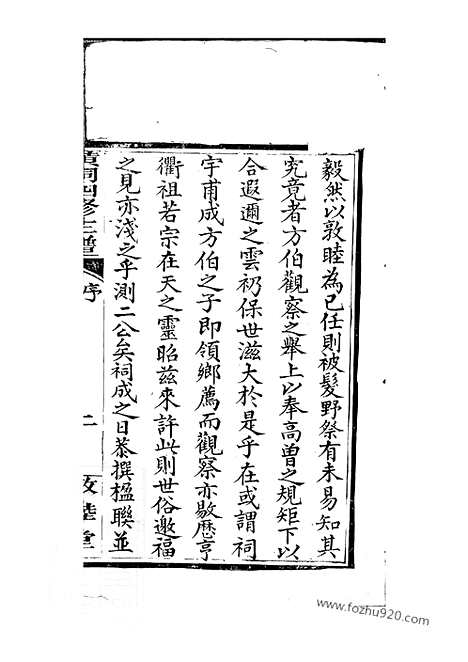 毅然以敦睦為已任則被髮野祭有未易知其
究竟者方伯觀察之舉上以奉高曾之規矩下以
合遐邇之雲礽保世滋大於是乎在或謂祠
宇甫成方伯之子即領鄉薦而觀察亦敭歷亨
衢祖若宗在天之靈昭兹來許此則世俗邀福
之見亦淺之乎測二公矣祠成之日恭撰楹聯並
祠四修主譜
序
二
敦睦堂
www.fozhu920.com